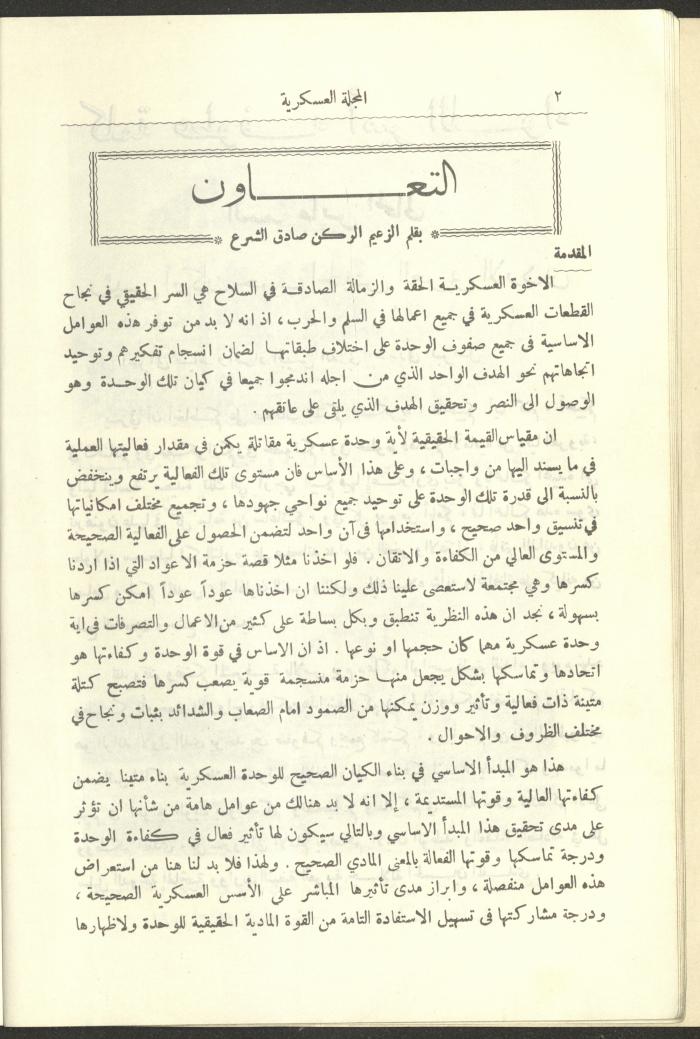 ٢
المجلة العسكرية
التعـــــــــاون
* بقلم الزعيم الركن صادق الشرع *
المقدمة
الاخوة العسكريـة الحقة والزمالة الصادقـة في السلاح هي السر الحقيقي في نجاح
القطعات العسكرية في جميع اعمالها في السلم والحرب ، اذ انه لا بد من توفر هذه العوامل
الاساسية في جميع صفوف الوحدة على اختلاف طبقاتهـا لضمان انسجام تفكيرهم وتوحيد
اتجاهاتهم نحو الهدف الواحد الذي من اجله اندمجوا جميعا في كيان تلك الوحـدة وهو
الوصول الى النصر وتحقيق الهدف الذي يلقى على عاتقهم .
ان مقياس القيمة الحقيقية لأية وحدة عسكرية مقاتلة يكمن في مقدار فعاليتها العملية
في ما يسند اليها من واجبات ، وعلى هذا الأساس فان مستوى تلك الفعالية يرتفع وينخفض
بالنسبة الى قدرة تلك الوحدة على توحيد جميع نواحي جهودها ، وتجميع مختلف امكانياتها
في تنسيق واحد صحيح ، واستخدامها في آن واحد لتضمن الحصول على الفعالية الصحيحة
والمستوى العالي من الكفاءة والاتقان . فلو اخذنا مثلا قصة حزمة الاعواد التي اذا اردنا
كسرها وهي مجتمعة لاستعصى علينا ذلك ولكننا ان اخذناها عوداً عوداً امكن كسرها
بسهولة ، نجد ان هذه النظرية تنطبق وبكل بساطة على كثير من الاعمال والتصرفات في اية
وحدة عسكرية مهما كان حجمها او نوعها . اذ ان الاساس في قوة الوحدة وكفاءتها هو
اتحادها وتماسكها بشكل يجعل منهـا حزمة منسجمة قوية يصعب كسرها فتصبح كتلة
متينة ذات فعالية وتأثير ووزن يمكنها من الصمود امام الصعاب والشدائد بثبات ونجاح في
مختلف الظروف والاحوال .
هذا هو المبدأ الاساسي في بناء الكيان الصحيح للوحدة العسكرية بناء متينا يضمن
كفاءتها العالية وقوتها المستديمة ، إلا انه لا بد هنالك من عوامل هامة من شأنها ان تؤثر
على مدى تحقيق هذا المبدأ الاساسي وبالتالي سيكون لها تأثير فعال في كفاءة الوحدة
ودرجة تماسكها وقوتها الفعالة بالمعنى المادي الصحيح . ولهذا فلا بد لنا هنا من استعراض
هذه العوامل منفصلة ، وابراز مدى تأثيرها المباشر على الأسس العسكرية الصحيحة ،
ودرجة مشاركتها في تسهيل الاستفادة التامة من القوة المادية الحقيقية للوحدة ولاظهارها